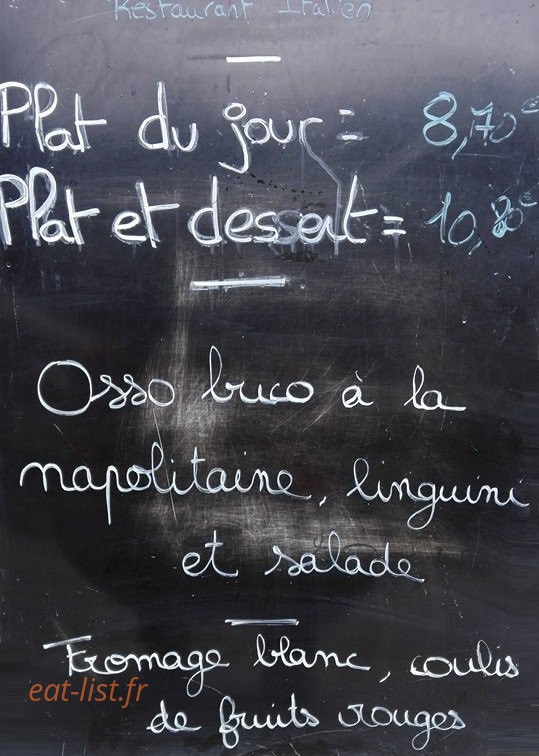 Restaurant Italien
Plat du jour = 8,70€
Plat et dessert = 10,80€
Osso buco à la
napolitaine, linguini
et salade
Fromage blanc, coulis
eat-list.fr
de fruits rouges